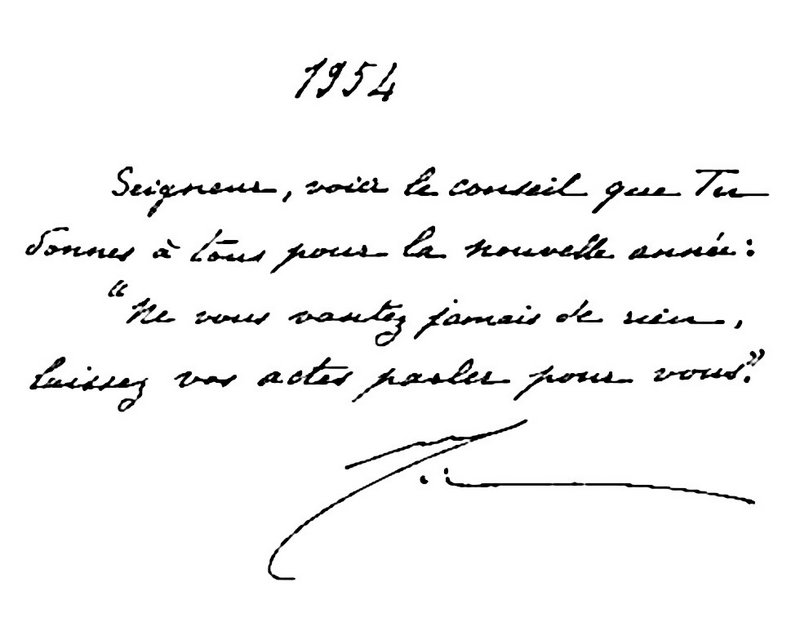 1954
Seigneur, voici le conseil que Tu
donnes à tous pour la nouvelle année:
“Ne vous vantez jamais de rien,
laissez vos actes parler pour vous.”